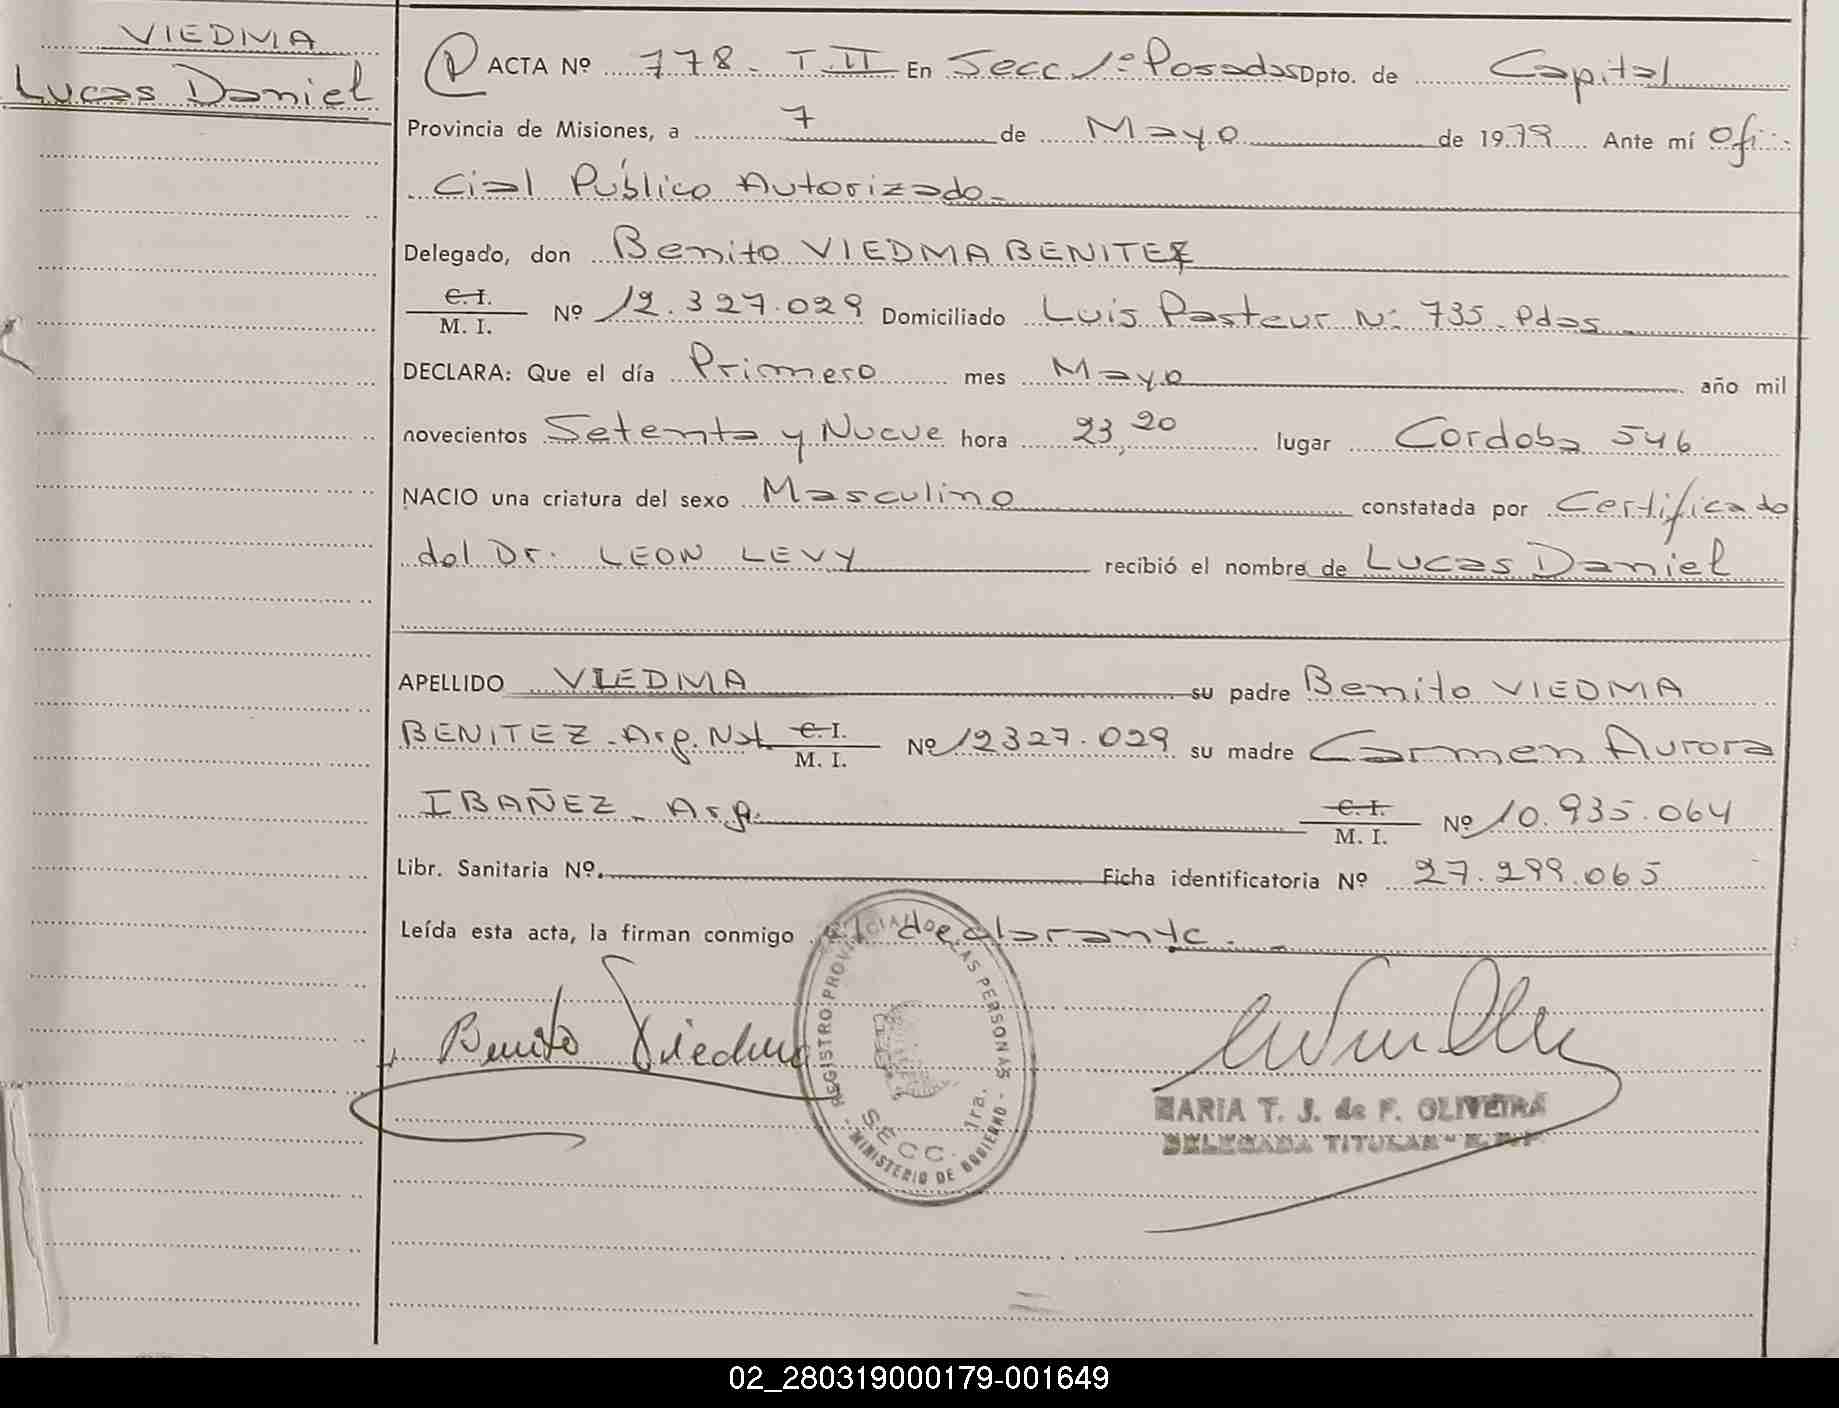 VIEDMA
Lucas Daniel
ACTA Nº 778. T. II En Secc 1º Posadas Dpto. de Capital
Provincia de Misiones, a 7 de Mayo de 1979 Ante mí Ofi
cial Público Autorizado
Delegado, don Benito VIEDMA BENITEZ
C. I.
M. I. Nº 12.327.029 Domiciliado Luis Pasteur Nº 735. Pdas
DECLARA: Que el día Primero mes Mayo año mil
novecientos Setenta y Nueve hora 23,20 lugar Cordoba 546
NACIO una criatura del sexo Masculino constatada por Certificado
del Dr. LEON LEVY recibió el nombre de Lucas Daniel
APELLIDO VIEDMA su padre Benito VIEDMA
BENITEZ. Arg. Nat. C. I. M. I. Nº 12327.029 su madre Carmen Aurora
IBAÑEZ. Arg. C. I. M. I. Nº 10.935.064
Libr. Sanitaria Nº. Ficha identificatoria Nº 27.299.065
Leída esta acta, la firman conmigo el declarante.
Benito Viedma
REGISTRO PROVINCIAL DE LAS PERSONAS
SECC. 1ra.
- MINISTERIO DE GOBIERNO -
MARIA T. J. de F. OLIVEIRA
DELEGADA TITULAR
02_280319000179-001649